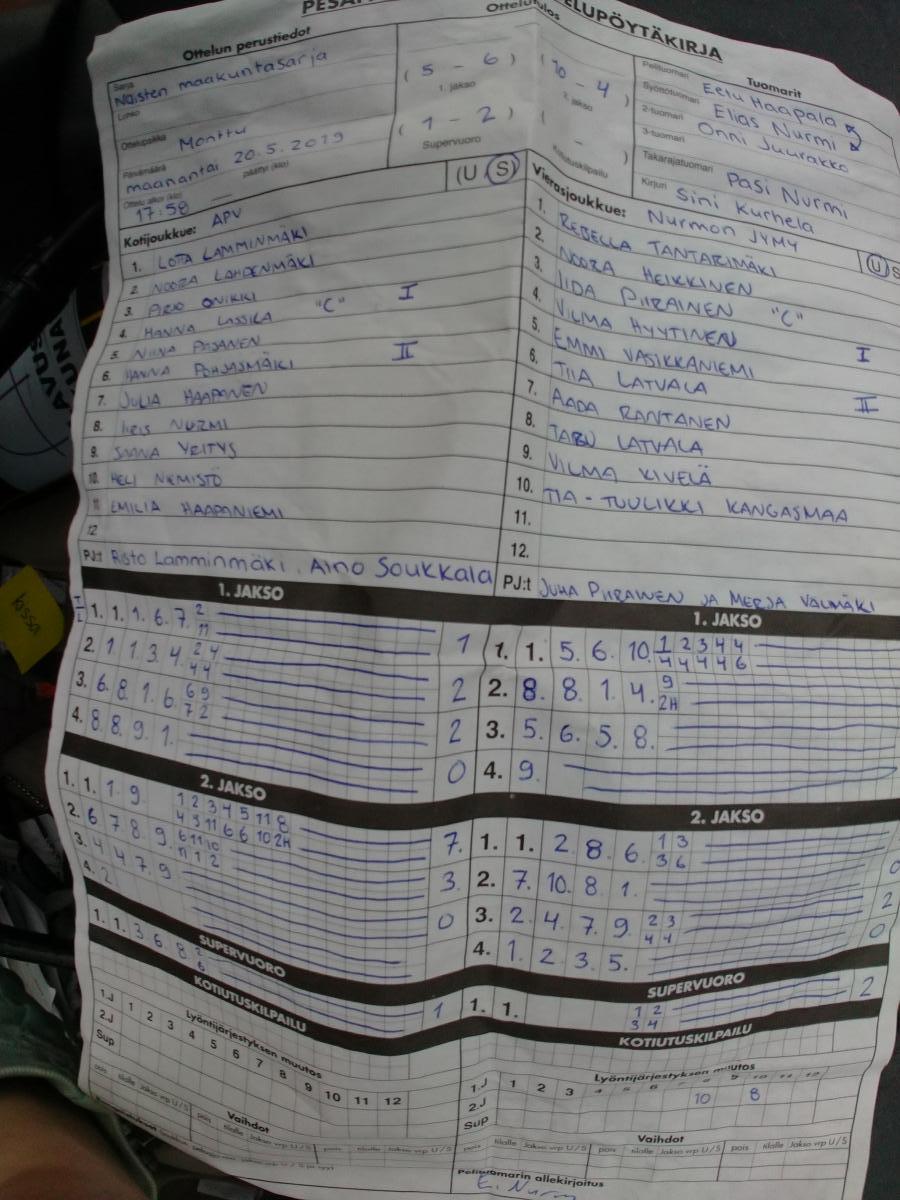 PÖYTÄKIRJA
Ottelun perustiedot
Sarja
Naisten maakuntasarja
Lohko
Ottelupaikka
Monttu
Päivämäärä
maanantai 20.5.2019
Ottelu alkoi (klo)
17:58
päättyi (klo)
(5 - 6)
1. jakso
(10 - 4
2. jakso
(1 - 2)
Supervuoro
Kotiutuskilpailu
Tuomarit
Pelituomari
Eetu Haapala
Syöttötuomari
Elias Nurmi
2-tuomari
Onni Juurakko
3-tuomari
Takarajatuomari
Pasi Nurmi
Kirjuri
Sini Kurhela
Kotijoukkue: APV
(U S)
1. LOTA LAMMINMÄKI
2. NOORA LAHDENMÄKI
3. ONIKKI
4. HANNA LASSILA "C" I
5. NIINA
6. HANNA POHJASMÄKI II
7. JULIA HAAPANEN
8. IIRIS NURMI
9. YRITYS
10. HELI NIEMISTÖ
11 EMILIA HAAPANIEMI
12
PJ:t Risto Lamminmäki, Aino Soukkala
Vierasjoukkue: Nurmon JYMY
U S
1. REBELLA TANTARIMÄKI
2. NOORA HEIKKINEN
3. IIDA PIIRAINEN "C"
4. VILMA HYYTINEN
5. EMMI VASIKKANIEMI I
6. TIIA LATVALA
7. AADA RANTANEN II
8. TARU LATVALA
9. VILMA KIVELÄ
10. TIA-TUULIKKI KANGASMAA
11.
12.
PJ:t JUHA PIIRAINEN JA MERJA VÄLIMÄKI
1. JAKSO
1. 1. 1. 6. 7. 2 11 1
2. 1 1 3 4 2 4 4 4 2
3. 6. 8. 1. 6. 6 9 7 2 2
4. 8 8 9 1. 0
1. JAKSO
1. 1. 5. 6. 10. 1 2 3 4 4
4 4 4 4 6
2. 8. 8 1 4. 9
2H
3. 5. 6. 5 8.
4. 9.
2. JAKSO
1. 1. 1 9 1 2 3 4 5 11 8
4 3 11 6 6 10 2H 7.
2. 6 7 8 9 6 11 10
11 1 2 3.
3. 4 4 7 9 0
4. 2
2. JAKSO
1. 1. 2 8 6. 1 3
3 6 0
2. 7. 10. 8 1. 2
3. 2 4 7 9 2 3
4 4 0
4. 1 2 3 5.
SUPERVUORO
1. 1. 3 6 8 2
6 1
SUPERVUORO
1. 1. 1 2
3 4 2
KOTIUTUSKILPAILU
Lyöntijärjestyksen muutos
1 2 3 4 5 6 7 8 9 10 11 12
1.J
2.J
Sup
Vaihdot
pois tilalle Jakso vrp U/S pois tilalle Jakso vrp U/S
KOTIUTUSKILPAILU
Lyöntijärjestyksen muutos
1 2 3 4 5 6 7 8 9 10 11 12
1.J
2.J 10 8
Sup
Vaihdot
pois tilalle Jakso vrp U/S pois tilalle Jakso vrp U/S
Pelituomarin allekirjoitus
kassa